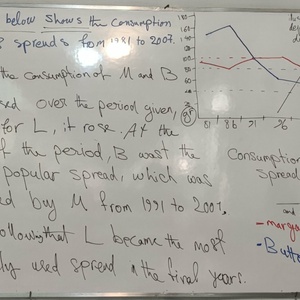 below shows the consumption
spreads from 1981 to 2007.
the consumption of M and B
over the period given,
for L, it rose. At the
f the period, B wast the
popular spread, which was
d buy M from 1991 to 2007.
following that L became the most
ly used spread in the final years.
180
160
140
120
100
80
60
40
81 86 91 96
Consumption
Spread
and
marga
Butte